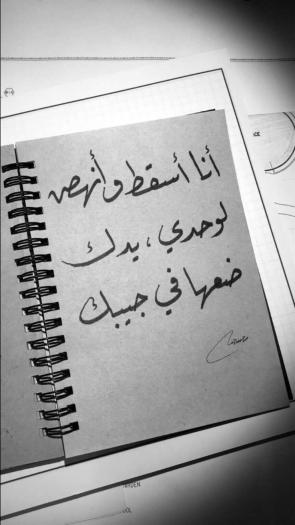 أنا أسقط و أنهض
لوحدي ، يدك
ضعها في جيبك